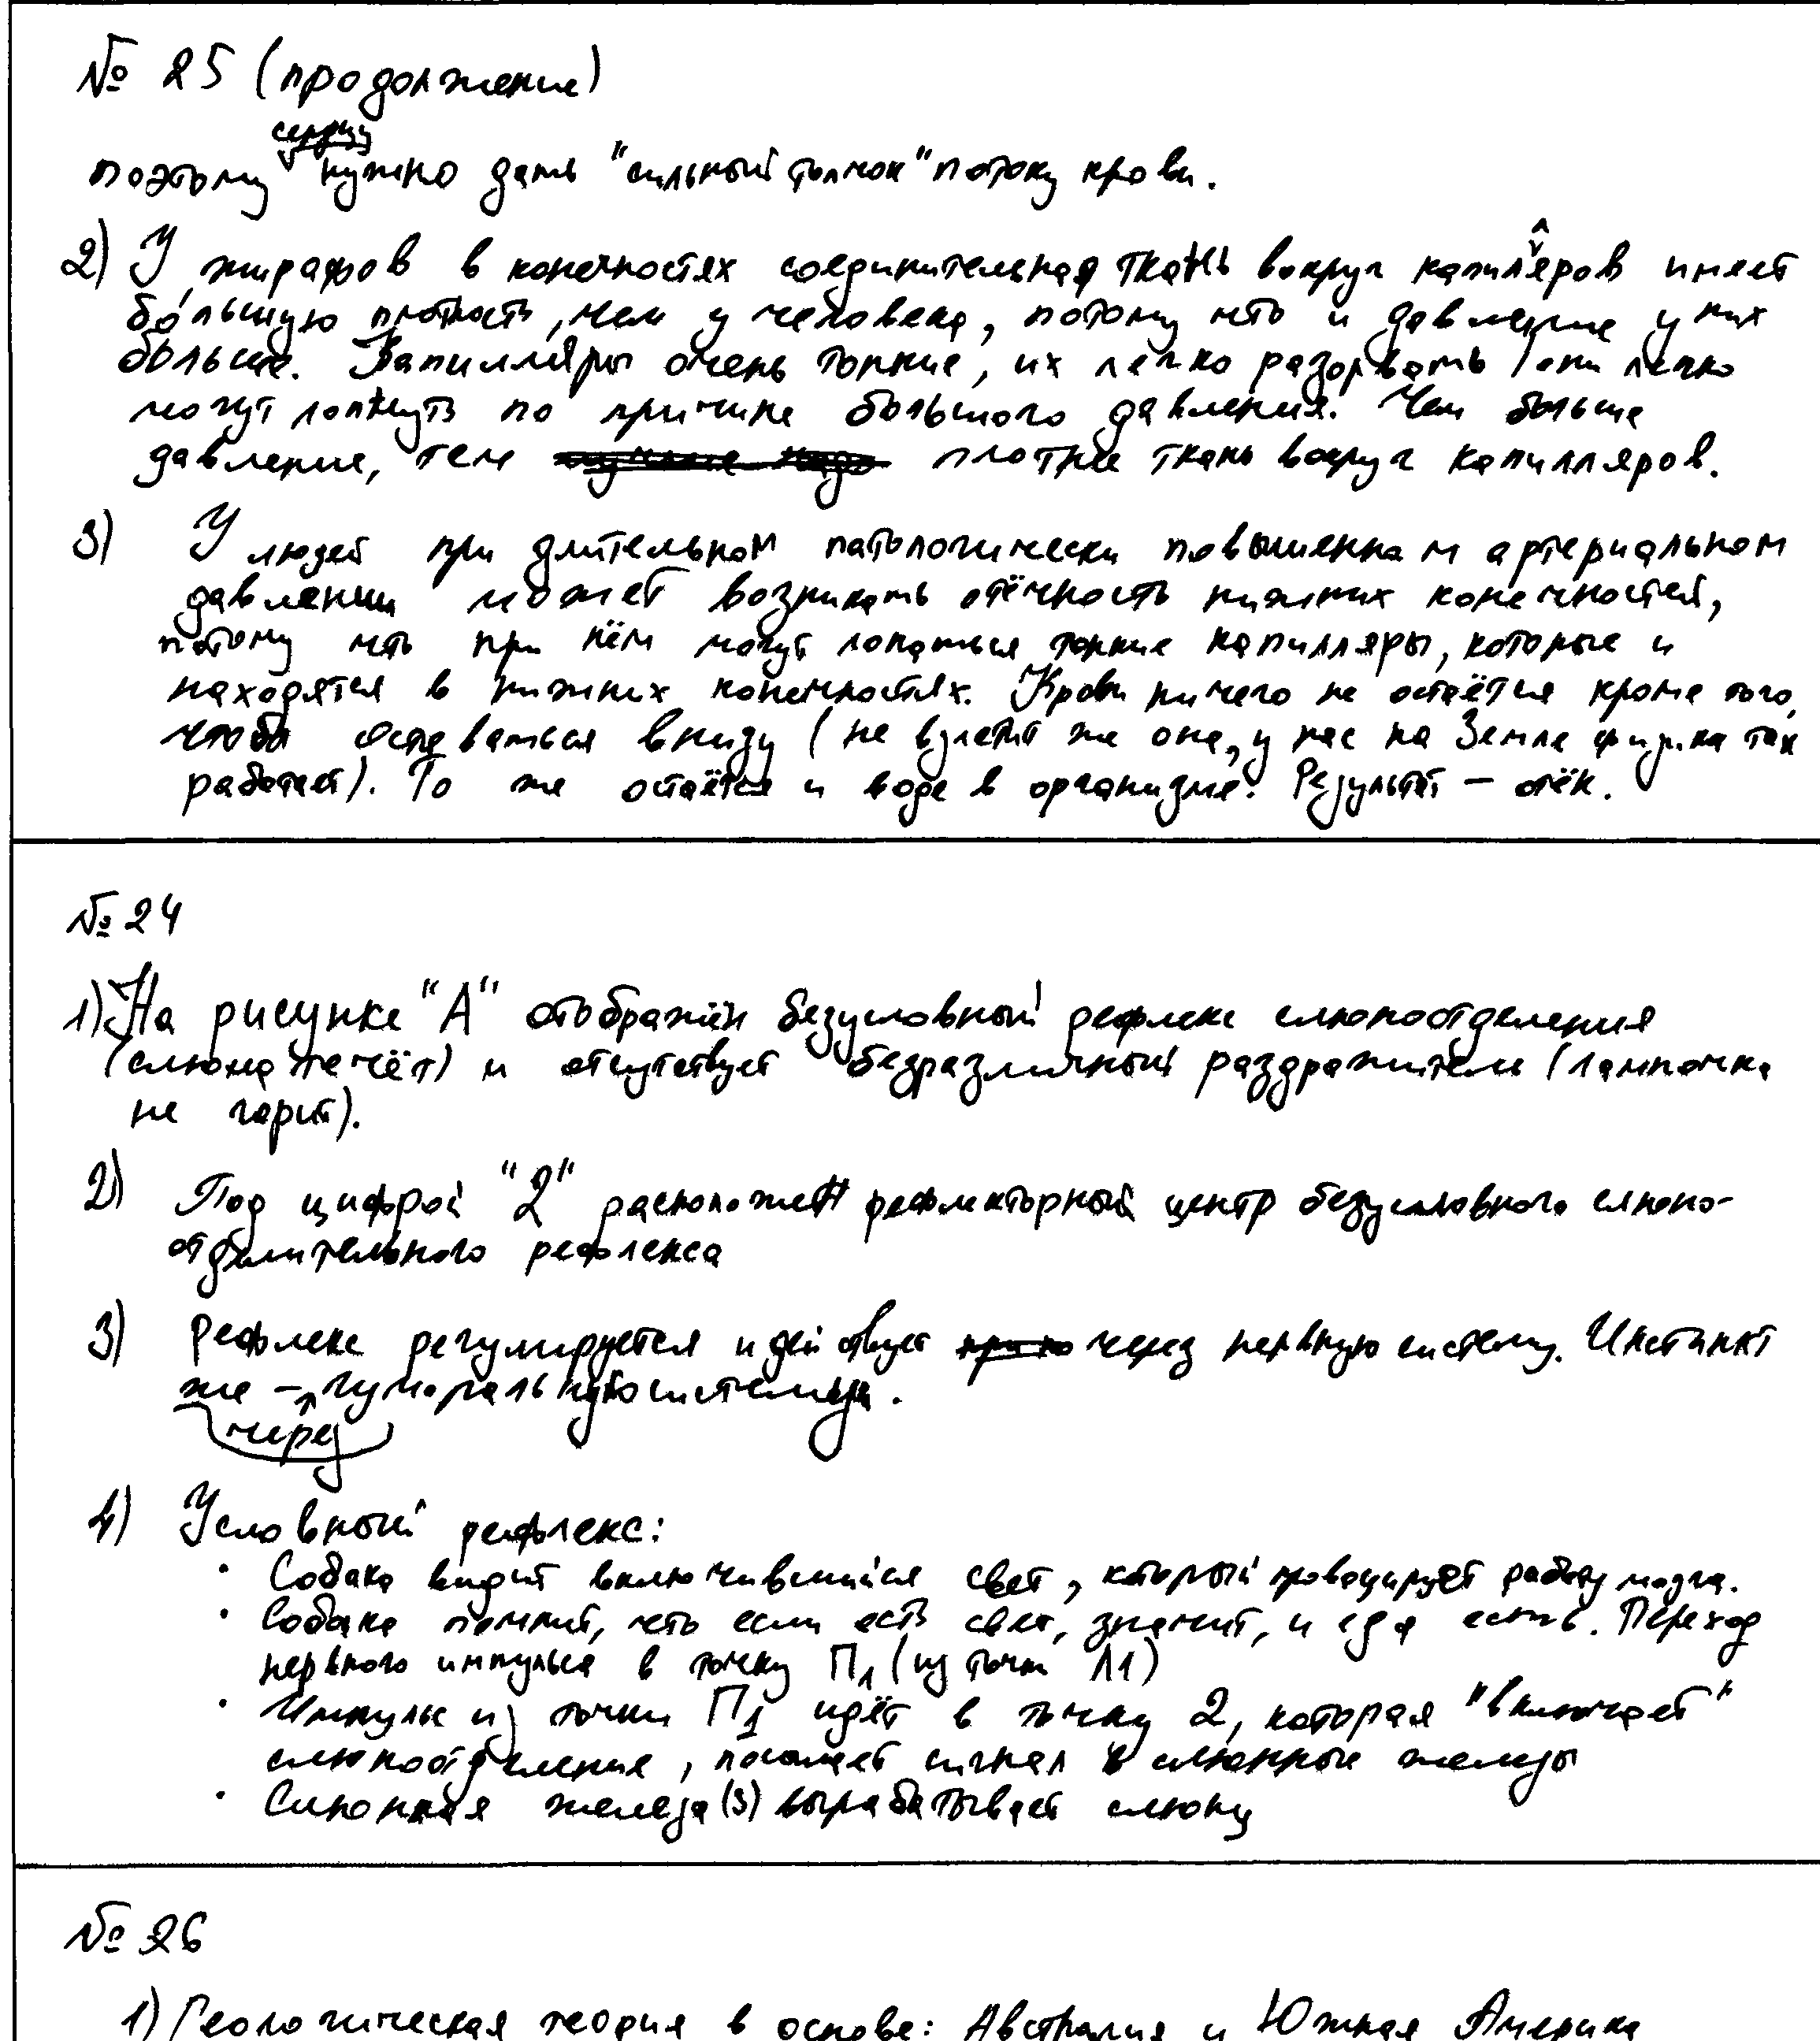 № 25 (продолжение)
сердцу
поэтому нужно дать "сильный толчок" потоку крови.
2) У жирафов в конечностях соединительная ткань вокруг капиляров имеет
бо́льшую плотность, чем у человека, потому что и давление у них
больше. Капилляры очень тонкие, их легко разорвать / они легко
могут лопнуть по причине большого давления. Чем больше
давление, тем плотнее ткань вокруг капилляров.
3) У людей при длительном патологически повышенном артериальном
давлении может возникать отёчность нижних конечностей,
потому что при нём могут лопаться тонкие капилляры, которые и
находятся в нижних конечностях. Крови ничего не остаётся кроме того,
чтобы оставаться внизу (не взлетит же она, у нас на Земле физика так
работает). То же остаётся и воде в организме. Результат – отёк.
№ 24
1) На рисунке "А" отображён безусловный рефлекс слюноотделения
(слюна течёт) и отсутствует безразличный раздражитель (лампочка
не горит).
2) Под цифрой "2" расположен рефлекторный центр безусловного слюно-
отделительного рефлекса
3) Рефлекс регулируется и действует через нервную систему. Инстинкт
же – гуморальную систему.
через
4) Условный рефлекс:
· Собака видит включившийся свет, который провоцирует работу мозга.
· Собака помнит, что если есть свет, значит, и еда есть. Переход
нервного импульса в точку П1 (из точки Л1)
· Импульс из точки П1 идёт в точку 2, которая "включает"
слюноотделение, посылает сигнал в слюнные железы
· Слюнная железа (3) вырабатывает слюну
№ 26
1) Геологическая теория в основе: Австралия и Южная Америка